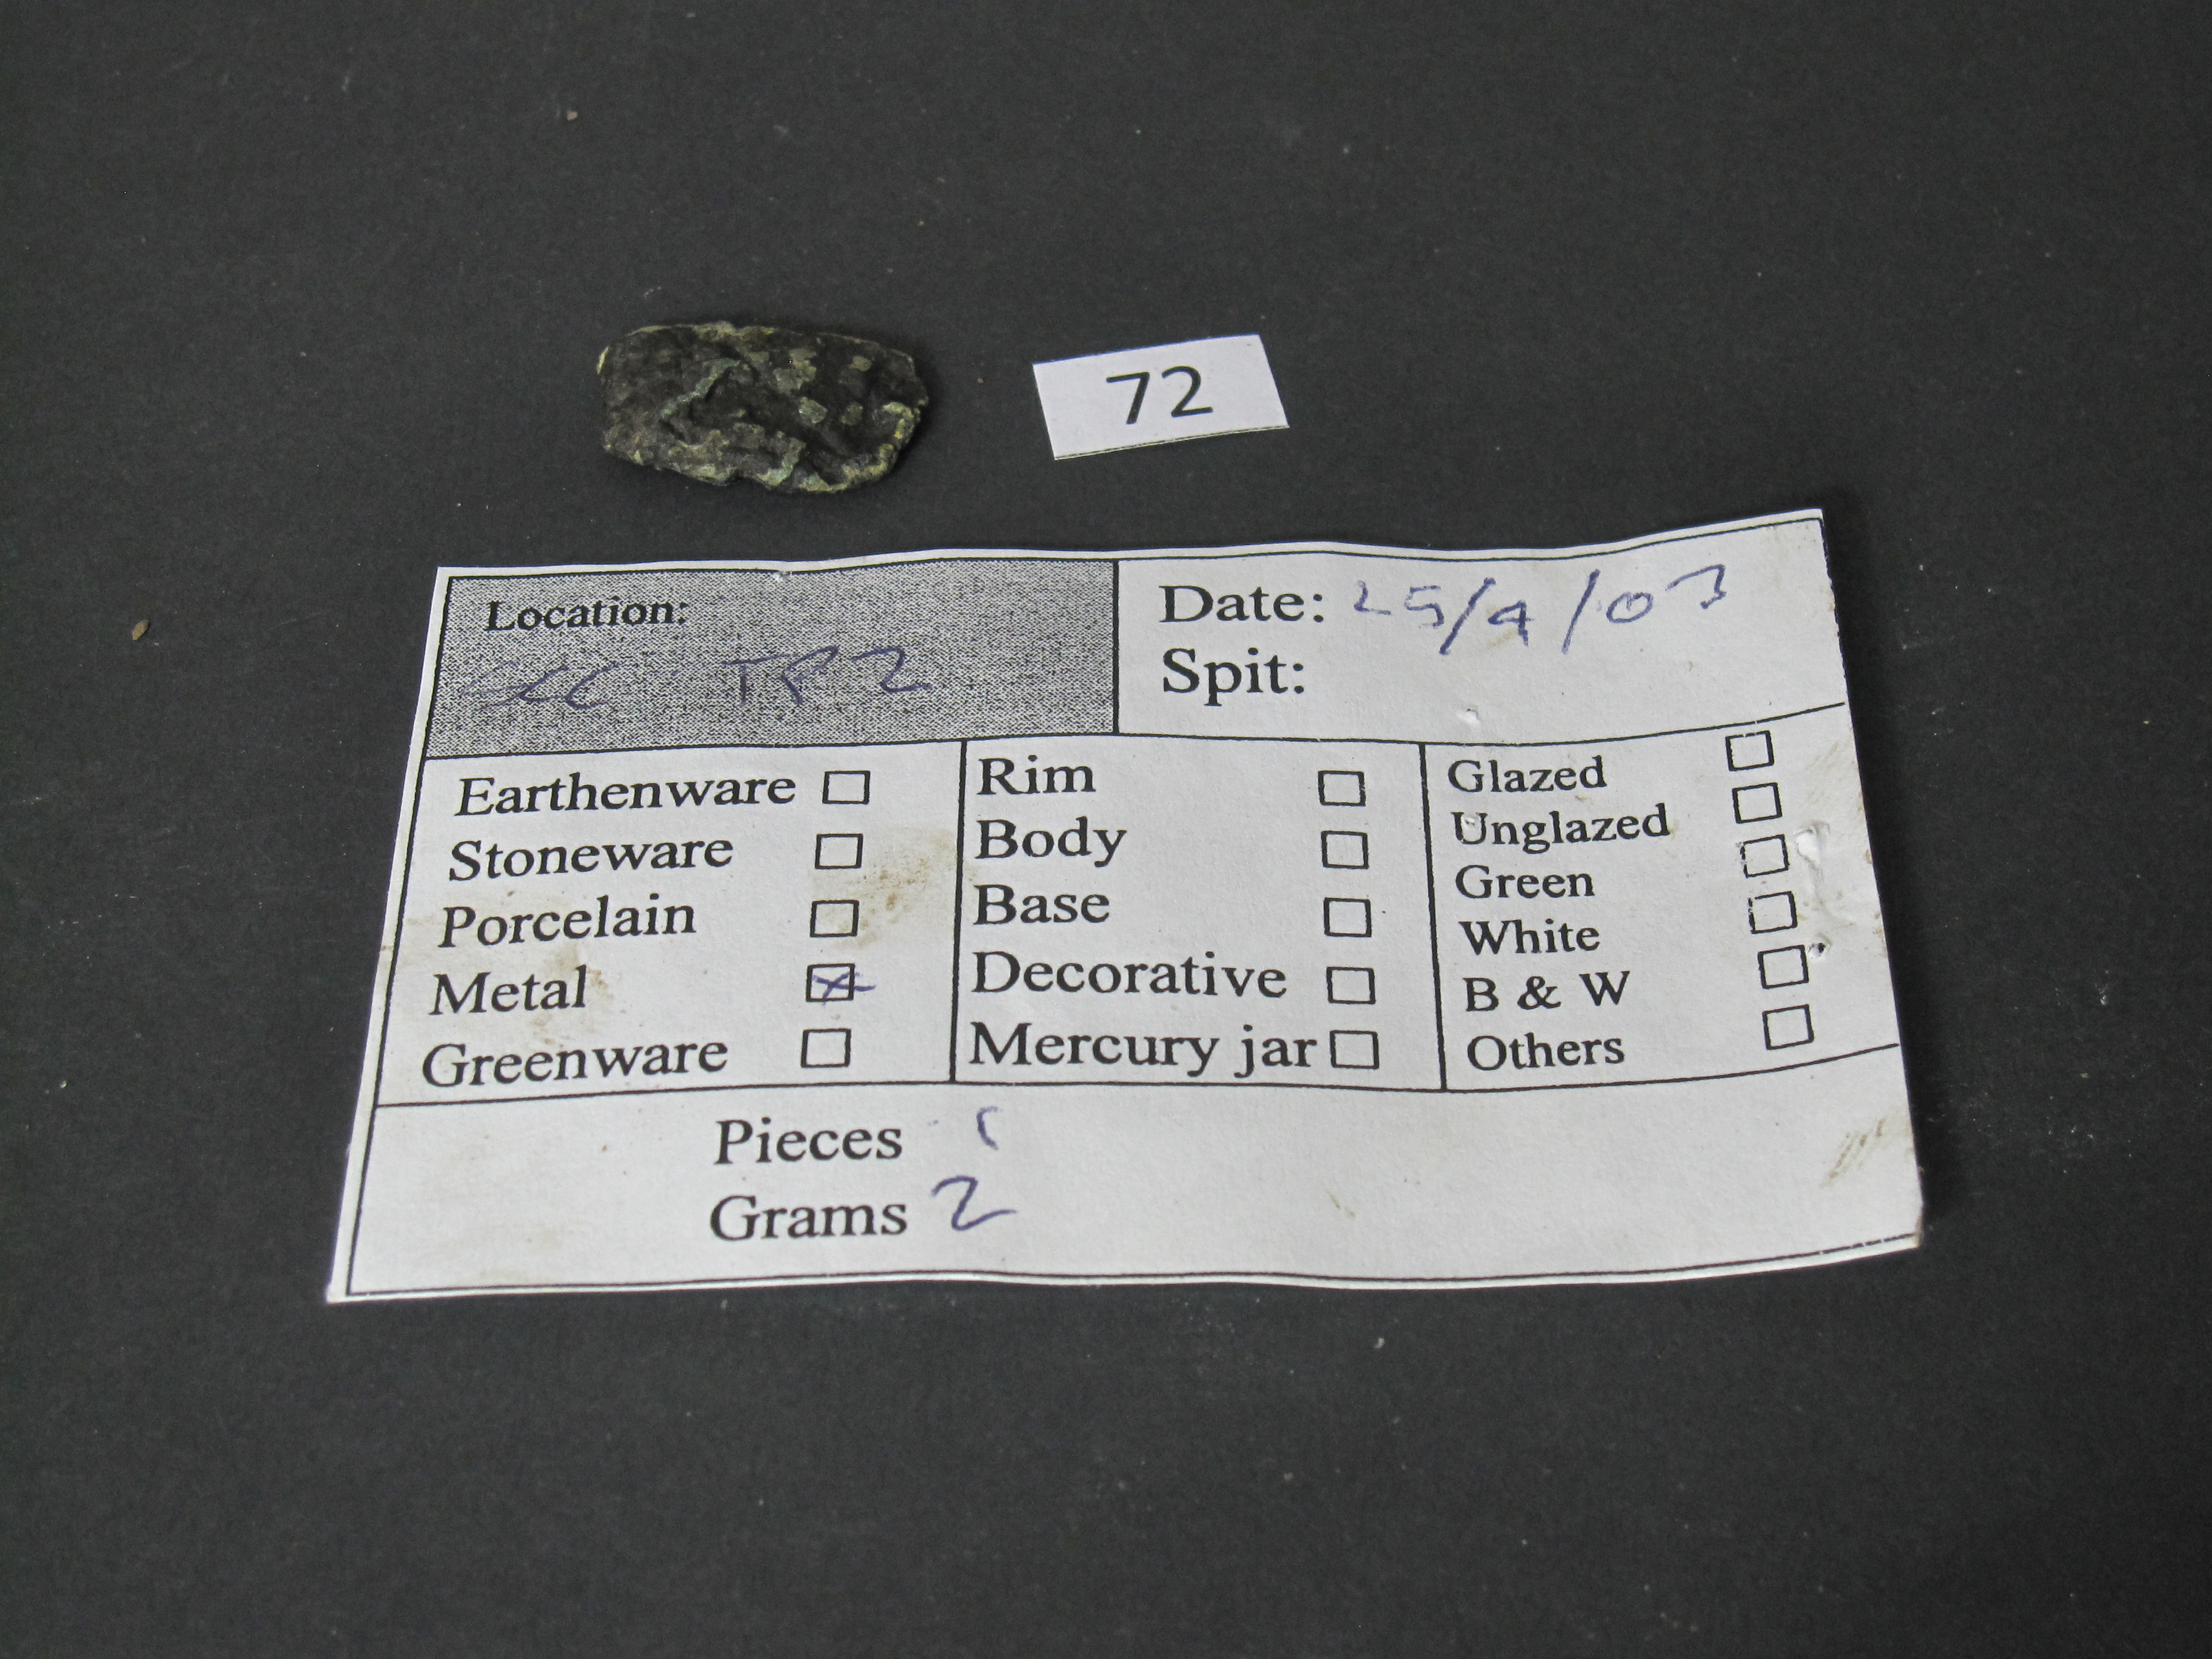 72
Location:
SCC TP2
Date: 25/9/03
Spit:
Earthenware
Stoneware
Porcelain
Metal
Greenware
Rim
Body
Base
Decorative
Mercury jar
Glazed
Unglazed
Green
White
B & W
Others
Pieces 1
Grams 2